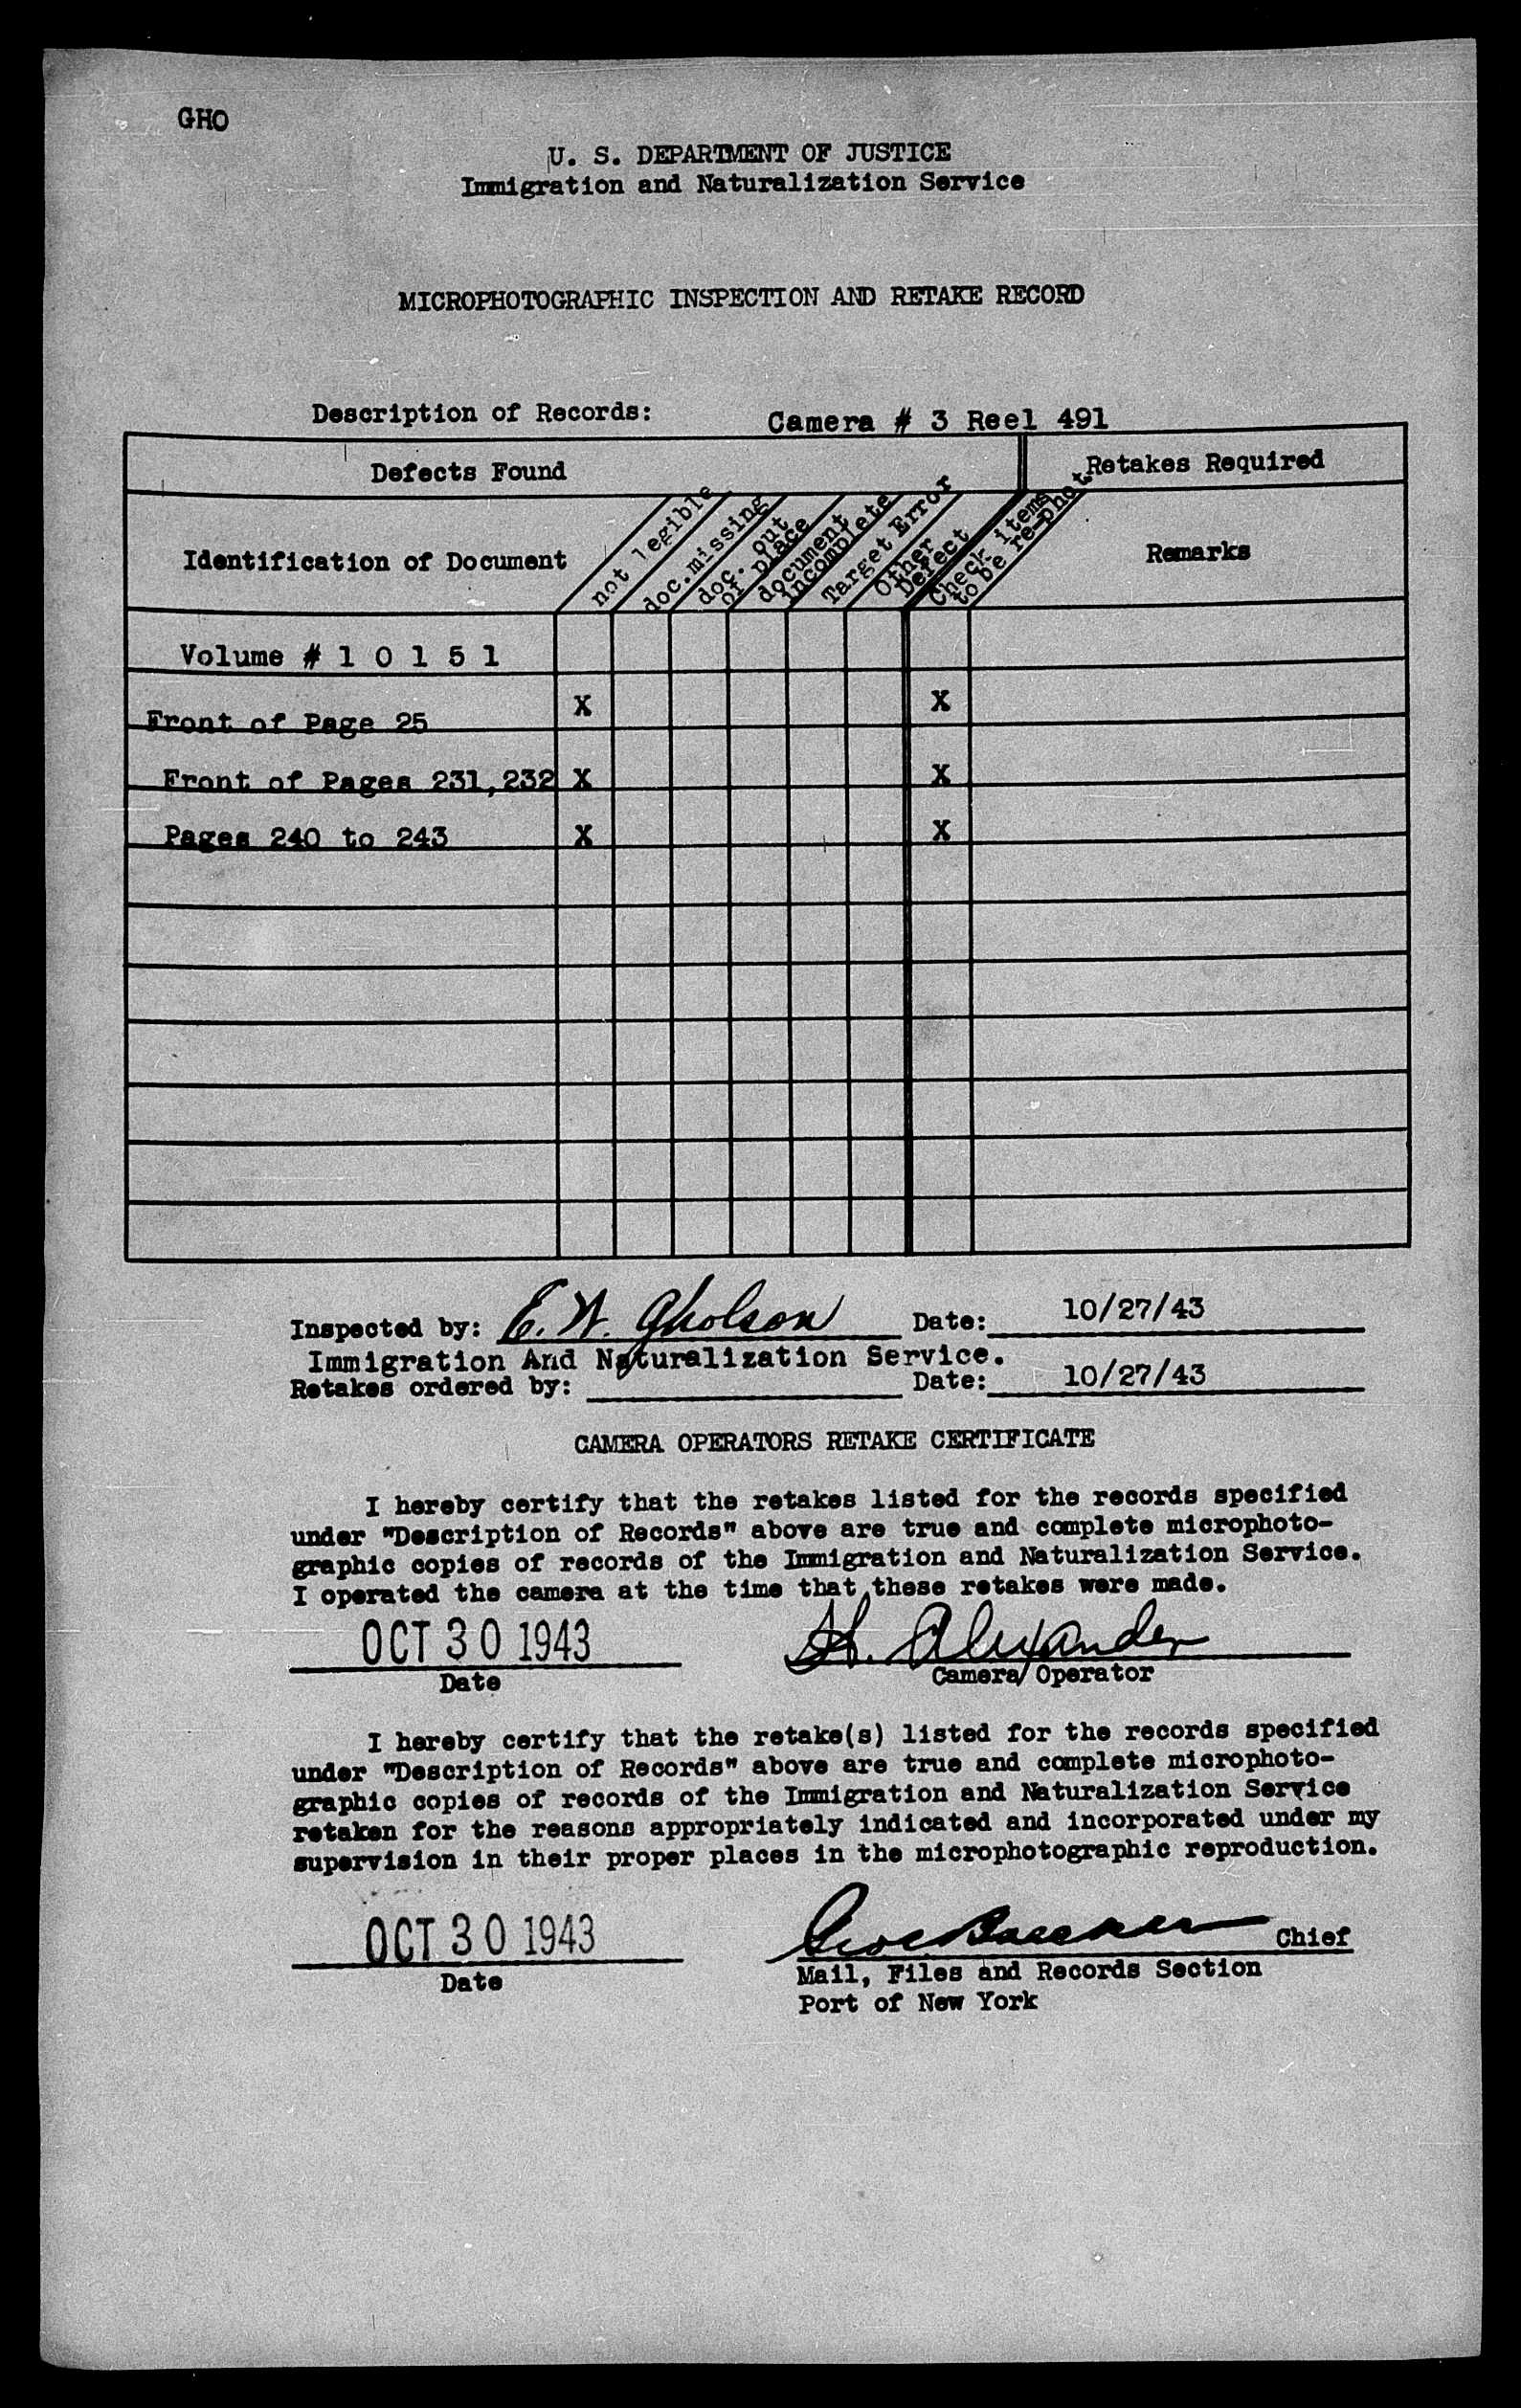 GHO
U. S. DEPARTMENT OF JUSTICE
Immigration and Naturalization Service
MICROPHOTOGRAPHIC INSPECTION AND RETAKE RECORD
Description of Records: Camera # 3 Reel 491
Defects Found Retakes Required
Identification of Document
not legible
doc. missing
doc. out
of place
document
incomplete
Target Error
Other
Defect
Check items
to be re-phot.
Remarks
Volume # 1 0 1 5 1
Front of Page 25 X X
Front of Pages 231,232 X X
Pages 240 to 243 X X
Inspected by: E. W. Gholson Date: 10/27/43
Immigration And Naturalization Service.
Retakes ordered by: Date: 10/27/43
CAMERA OPERATORS RETAKE CERTIFICATE
I hereby certify that the retakes listed for the records specified
under "Description of Records" above are true and complete microphoto-
graphic copies of records of the Immigration and Naturalization Service.
I operated the camera at the time that these retakes were made.
OCT 30 1943 H. Alexander
Date Camera Operator
I hereby certify that the retake(s) listed for the records specified
under "Description of Records" above are true and complete microphoto-
graphic copies of records of the Immigration and Naturalization Service
retaken for the reasons appropriately indicated and incorporated under my
supervision in their proper places in the microphotographic reproduction.
OCT 30 1943 Chief
Date Mail, Files and Records Section
Port of New York